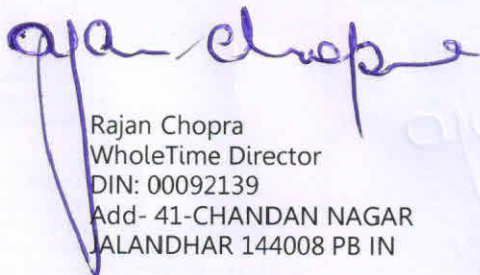 Rajan Chopra
WholeTime Director
DIN: 00092139
Add- 41-CHANDAN NAGAR
JALANDHAR 144008 PB IN